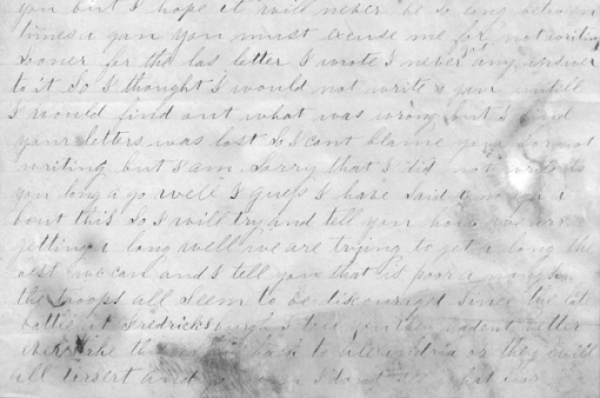 you but I hope it will never be so long between
times a gan you must excuse me for not writing
sooner for the las letter I wrote I never any answer
to it So I thought I would not write a gan untill
I would find out what was wrong but I find
your letters was lost So I cant blame you for not
writing but I am Sorry that I did not write to
you long a go well I guess I have Said enough a
bout this So I will try and tell you how we are
getting a long well we are trying to get a long the
best we can and I tell you that is poor a nough
the troops all Seem to be discouragt Since the lat
battle at Fredricksburgh I tell you they had better
take them back to Alexandria or they will
all desert and I dont